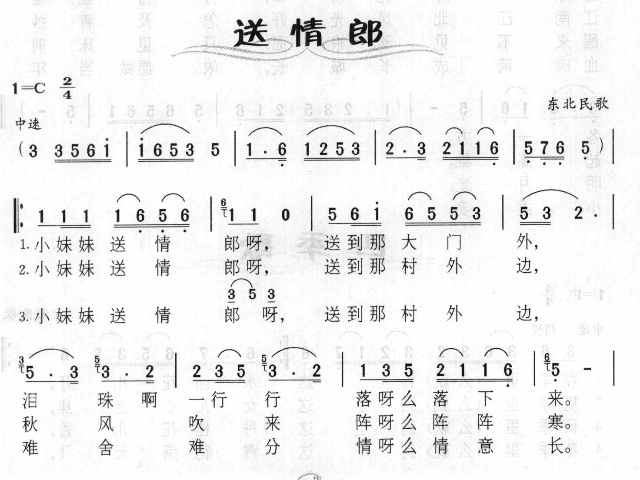 送情郎
1=C 2/4
东北民歌
中速
(3 3561 | 1653 5 | 1·6 1253 | 2·3 2116 | 576 5)
1 1 1 1656 | 1 1 0 | 5 6 1 6553 | 53 2·
1.小妹妹送情郎呀,送到那大门外,
2.小妹妹送情郎呀,送到那村外边,
3 5 3
3.小妹妹送情郎呀,送到那村外边,
5·3 3·2 | 235 3·2 | 1235 2116 | 5 -
泪珠啊一行行落呀么落下来。
秋风吹来阵呀么阵阵寒。
难舍难分情呀么情意长。